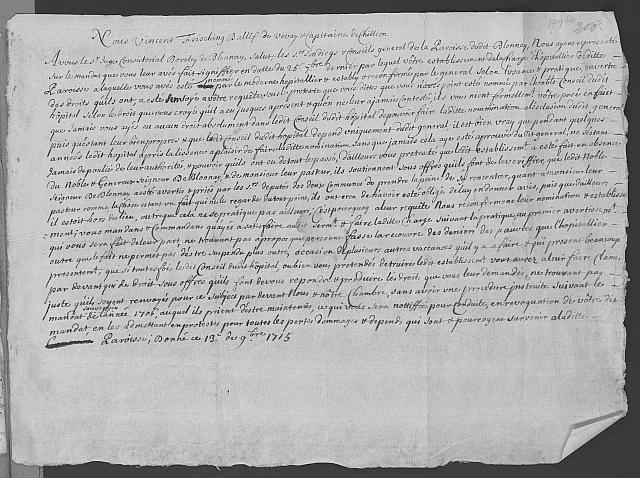 Nous Vincent Frisching Ballif de Vevay & Capitaine de Chillion
A vous le Sr. Juge Consistorial Boraley de Blonnay, Salut, les Srs. Sindiqs & Conseils general de la Paroisse dudit Blonnay, Nous ayent representés
Sur le mandat que vous leur avés fait signiffier en datte du 26e 8bre dernier par lequel votre establissement de la charge d'hospitallier de ditte
Paroisse a laquelle vous avés esté nommé par le moderne hospitallier & estably & reconfirmé par le general Selon l'usance & pratique, envertu
des droits quils ont, a esté renvoyé a votre requeste sous le pretexte que vous dittes que vous n'avés point esté nommé par l'honble Conseil du dit
hôpital selon le droit que vous croyés quil a eu jusques apresent & quon ne leur a jamais contesté, ils vous nient formellement votre posé en fait
que jamais vous ayés eu aucun droit absolument dans ledit Conseil dudit hôpital de pouvoir faire la ditte nomination a lexclusion dudit general
puis questant leur bien propre & que ledit Conseil dudit hôpital depend uniquement dudit general, il est bien vray que pendant quelques
années ledit hôpital a pris la lissence a plaisir de faire laditte nomination sans que jamais cela aye estés approuvé dudit general, ne s'estant
jamais depouillé de leur authorité & pouvoir quils ont eu de tout tepassé, d'ailleurs vous pretextés que ledit establissemt. a estés fait en absence
du Noble & Genereux Seigneur De Blonnay, & de monsieur leur pasteur, ils soutiennent sous offres quils font de le veriffier, que ledit Noble
Seigneur De Blonnay a esté avertit & priré par les Srs. deputés des deux Communes de prendre la peine de s'y rencontrer, quant a monsieur leur
pasteur comme la chose estant un fait qui ne le regarde du tout point, ils ont creu de n'avoir estés obligé de luy en donner avis, puis que d'ailleurs
il estoit hors du lieu, outre que cela ne se pratique pas ailleurs, C'est pourquoy a leur requeste Nous reconfirmons leur nomination & establisse-
ment; vous mandans & Commandans qu'ayés a satisfaire audit serment & faire laditte Charge suivant la pratique au premier avertissemt.
qui vous sera fait de leur part ne trouvant pas apropos que personne fasse la recouvre des deniers des pauvres que l'hospitallier
outre que le fait ne permet pas destre suspendu plus outre, occasion de plusieurs autres vaccances quil y a a faire & qui pressent beaucoup
presentement, que si toutefois ledit Conseil dudit hôpital, ou bien vous pretendés destruire ledit establissemt. vous aurés a leur faire Clame
par devant qui de droit sous offres quils font de vous repondre & produire les droits que vous leur demandés, ne trouvant pas
juste quils soyent renvoyés pour ce subject par devant Nous & notre Chambre, sans avoir une procedure instruite suivant le
mandat souverain de l'année 1706, auquel ils prient destre maintenus, ce qui vous sera nottiffié pour conduitte, en revocation de votre dit
mandat en les admettant en protestes pour toutes les pertes dommages & depends qui sont & pourroyent survenir a laditte
Paroisse; Donné ce 13e de 9bre 1715